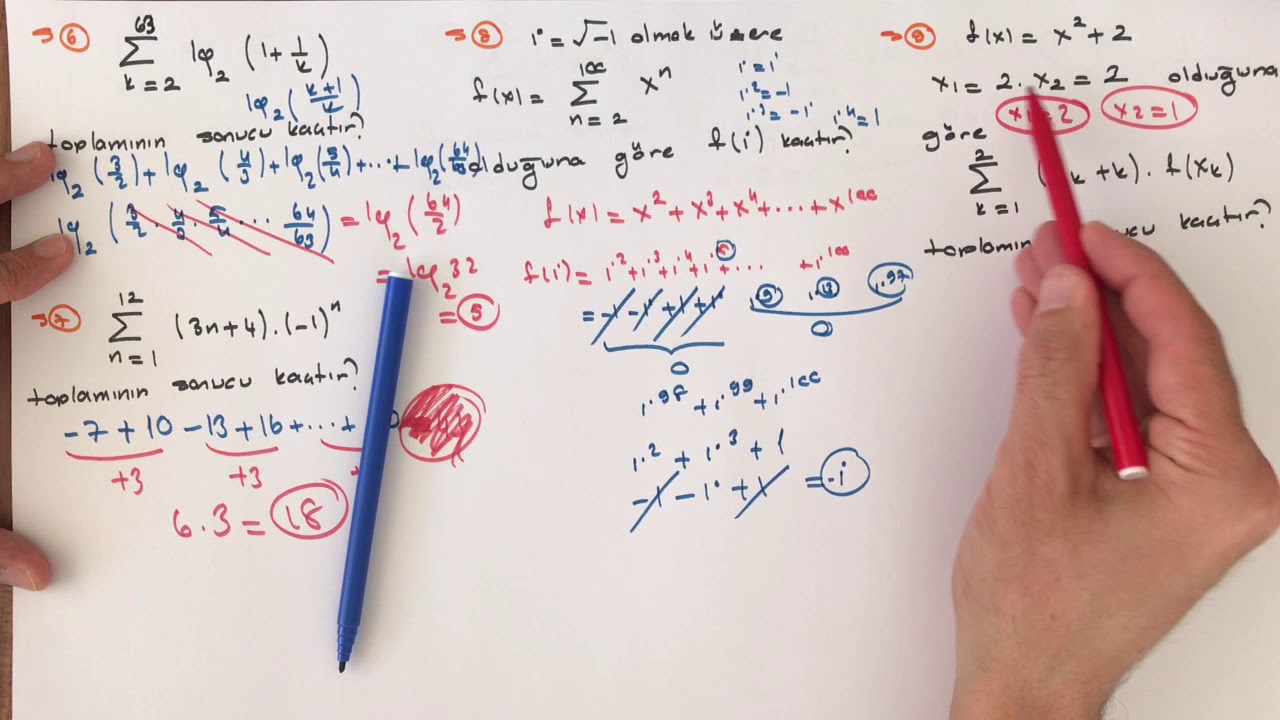 → 6
63
∑ log₂ (1 + 1/k)
k = 2
log₂ (k+1/k)
toplamının sonucu kaçtır?
log₂ (3/2) + log₂ (4/3) + log₂ (5/4) + ... + log₂ (64/63)
log₂ (3/2 . 4/3 . 5/4 ... 64/63) = log₂ (64/2)
= log₂ 32
= 5
→ 7
12
∑ (3n+4).(-1)ⁿ
n = 1
toplamının sonucu kaçtır?
-7 + 10 -13 + 16 + ... +
+3 +3
6.3 = 18
→ 8 i = √-1 olmak üzere
100
f(x) = ∑ xⁿ
n = 2
i¹ = i
i² = -1
i³ = -i i⁴ = 1
olduğuna göre f(i) kaçtır?
f(x) = x² + x³ + x⁴ + ... + x¹⁰⁰
f(i) = i² + i³ + i⁴ + i⁵ + ... + i¹⁰⁰
= -1 - i + 1 + i i⁹ i¹³ i⁹⁷
0 0
i⁹⁸ + i⁹⁹ + i¹⁰⁰
i² + i³ + 1
-1 - i + 1 = -i
→ 9 f(x) = x² + 2
x₁ = 2 . x₂ = 2 olduğuna
x₂ = 1
göre
2
∑ k + k) . f(xₖ)
k = 1
kaçtır?